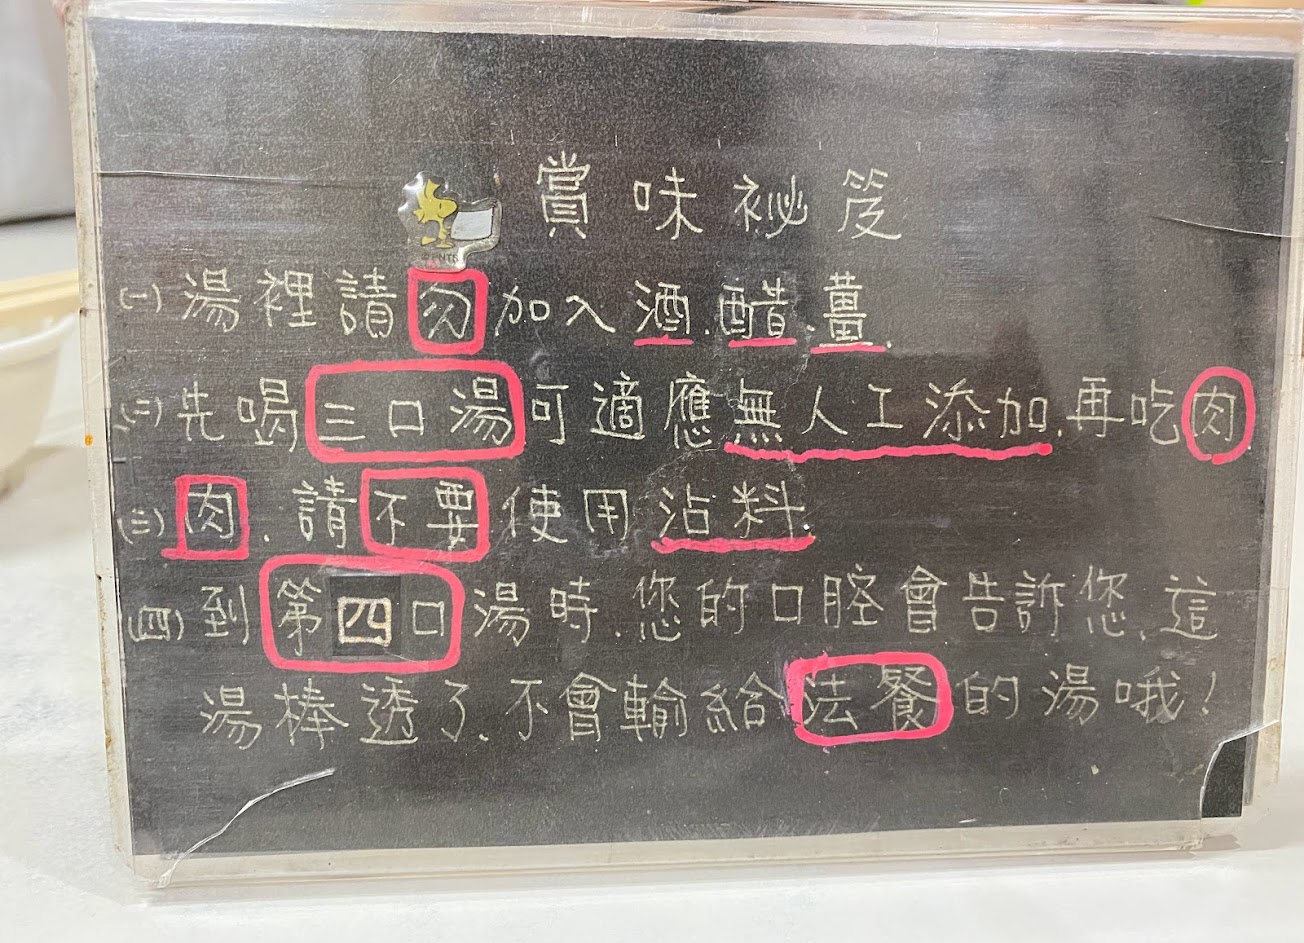 賞味祕笈
(一)湯裡請勿加入酒.醋.薑.
(二)先喝三口湯可適應無人工添加.再吃肉.
(三)肉.請不要使用沾料.
(四)到第四口湯時.您的口腔會告訴您.這
湯棒透了.不會輸給法餐的湯哦!